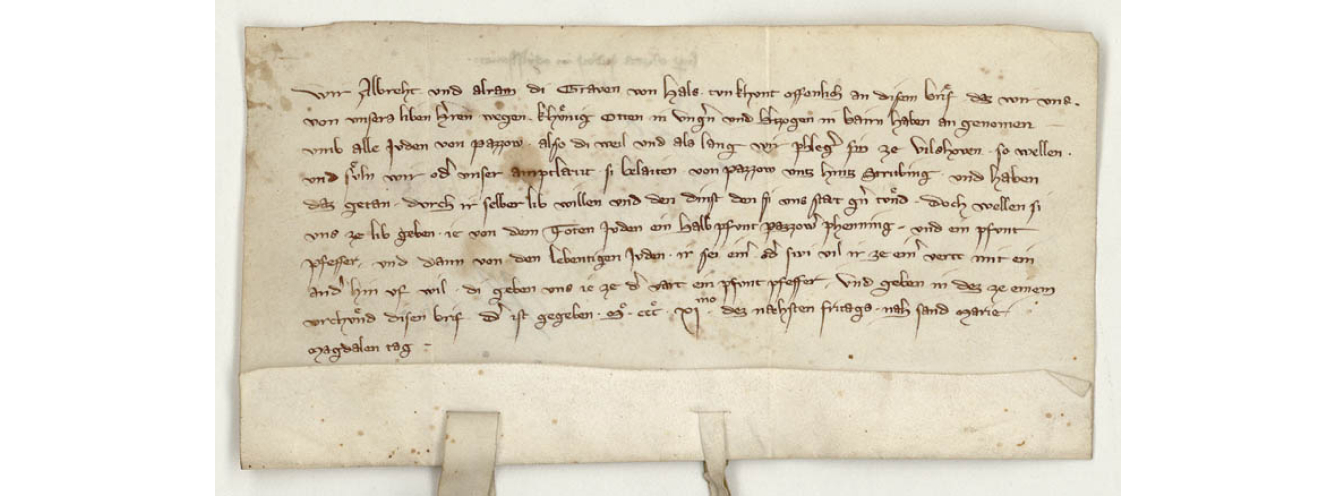 Wir Albreht und alram di Graven von Hals . tun khunt offenlich an disem brif . daz wir uns .
von unsers liben h̄ren wegen . khůnig Otten in unḡn und h̄tzogen in bairn haben an genomen
umb alle Juden von pazzow . also di weil und als lang wir phleḡ sin ze vilshoven . so wellen .
und sůln wir od̄ unser amptlaeut si belaiten von pazzow unz hintz Strubing . und haben
daz getan . durch ir selber lib willen und den dinst den si uns stat ḡn tůnd . doch wellen si
uns ze lib geben . ie von dem Toten Juden ein halb pfunt pazzow̄ phenning . und ein pfunt
pfeffer . und dann von den lebentigen Juden . ir sei ein̄ . od̄ swi vil ir ze ein̄ vertt mit ein
and̄ hin uf wil . di geben uns ie ze d̄ vart ein pfunt pfeffer . Und geben in dez ze einem
urchůnd disen brif . d̄ ist gegeben . mº . cccº . xi mo . dez nahsten fritags . nah sand Marie
Magdalen tag .